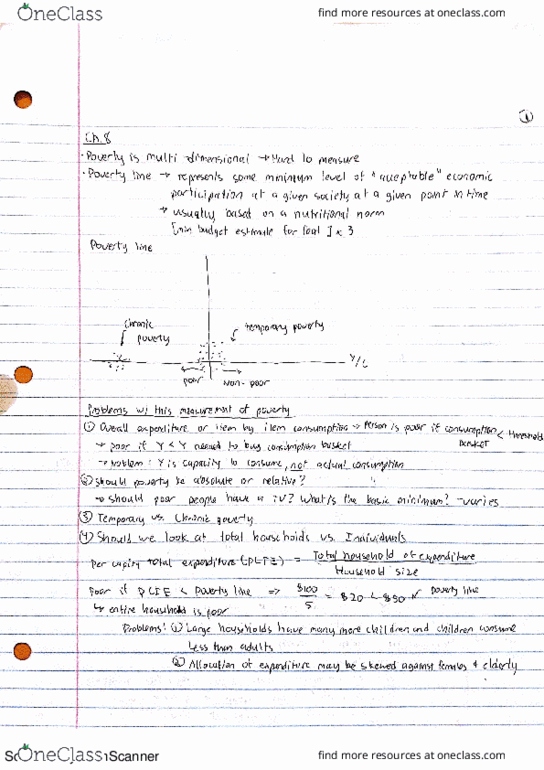 OneClass
find more resources at oneclass.com
1
Ch 8
• Poverty is multi dimensional → Hard to measure
• Poverty line → represents some minimum level of "acceptable" economic
participation at a given society at a given point in time
→ usually based on a nutritional norm
[min budget estimate for food] x 3
Poverty line
Chronic
poverty
temporary poverty
Y/C
poor
non-poor
Problems w/ this measurement of poverty
① Overall expenditure or item by item consumption → Person is poor if consumption < threshold
basket
→ poor if Y < Y needed to buy consumption basket
→ problem: Y is capacity to consume, not actual consumption
② Should poverty be absolute or relative?
→ should poor people have a TV? What is the basic minimum? - varies
③ Temporary vs. Chronic poverty
④ Should we look at total households vs. Individuals
Per capita total expenditure (PCTE) = Total household of expenditure
Household size
Poor if PCTE < Poverty line => $100
5
= $20 < $50 poverty line
↳ entire household is poor
Problems: ① Large households have many more children and children consume
less than adults
② Allocation of expenditure may be skewed against females & elderly
OneClass
Scanner
find more resources at oneclass.com